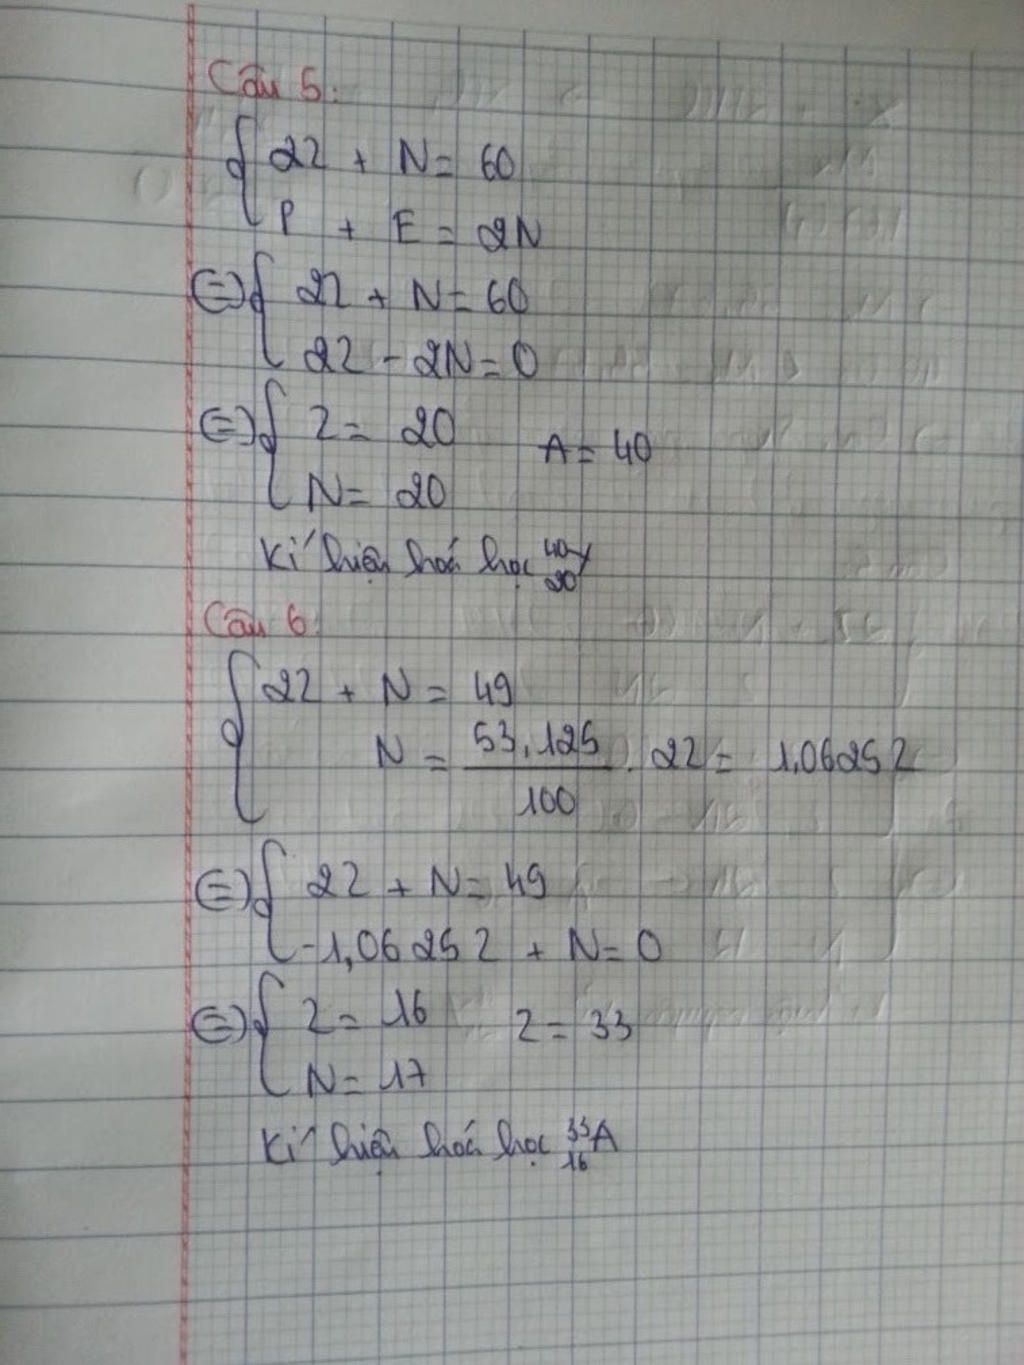 Câu 5:
{ 2Z + N = 60
P + E = 2N
⇔ { 2Z + N = 60
2Z - 2N = 0
⇔ { Z = 20
N = 20 A = 40
Kí hiệu hoá học ⁴⁰₂₀Y
Câu 6:
{ 2Z + N = 49
N = 53,125/100 . 2Z = 1,0625Z
⇔ { 2Z + N = 49
-1,0625Z + N = 0
⇔ { Z = 16 Z = 33
N = 17
Kí hiệu hoá học ³³₁₆A